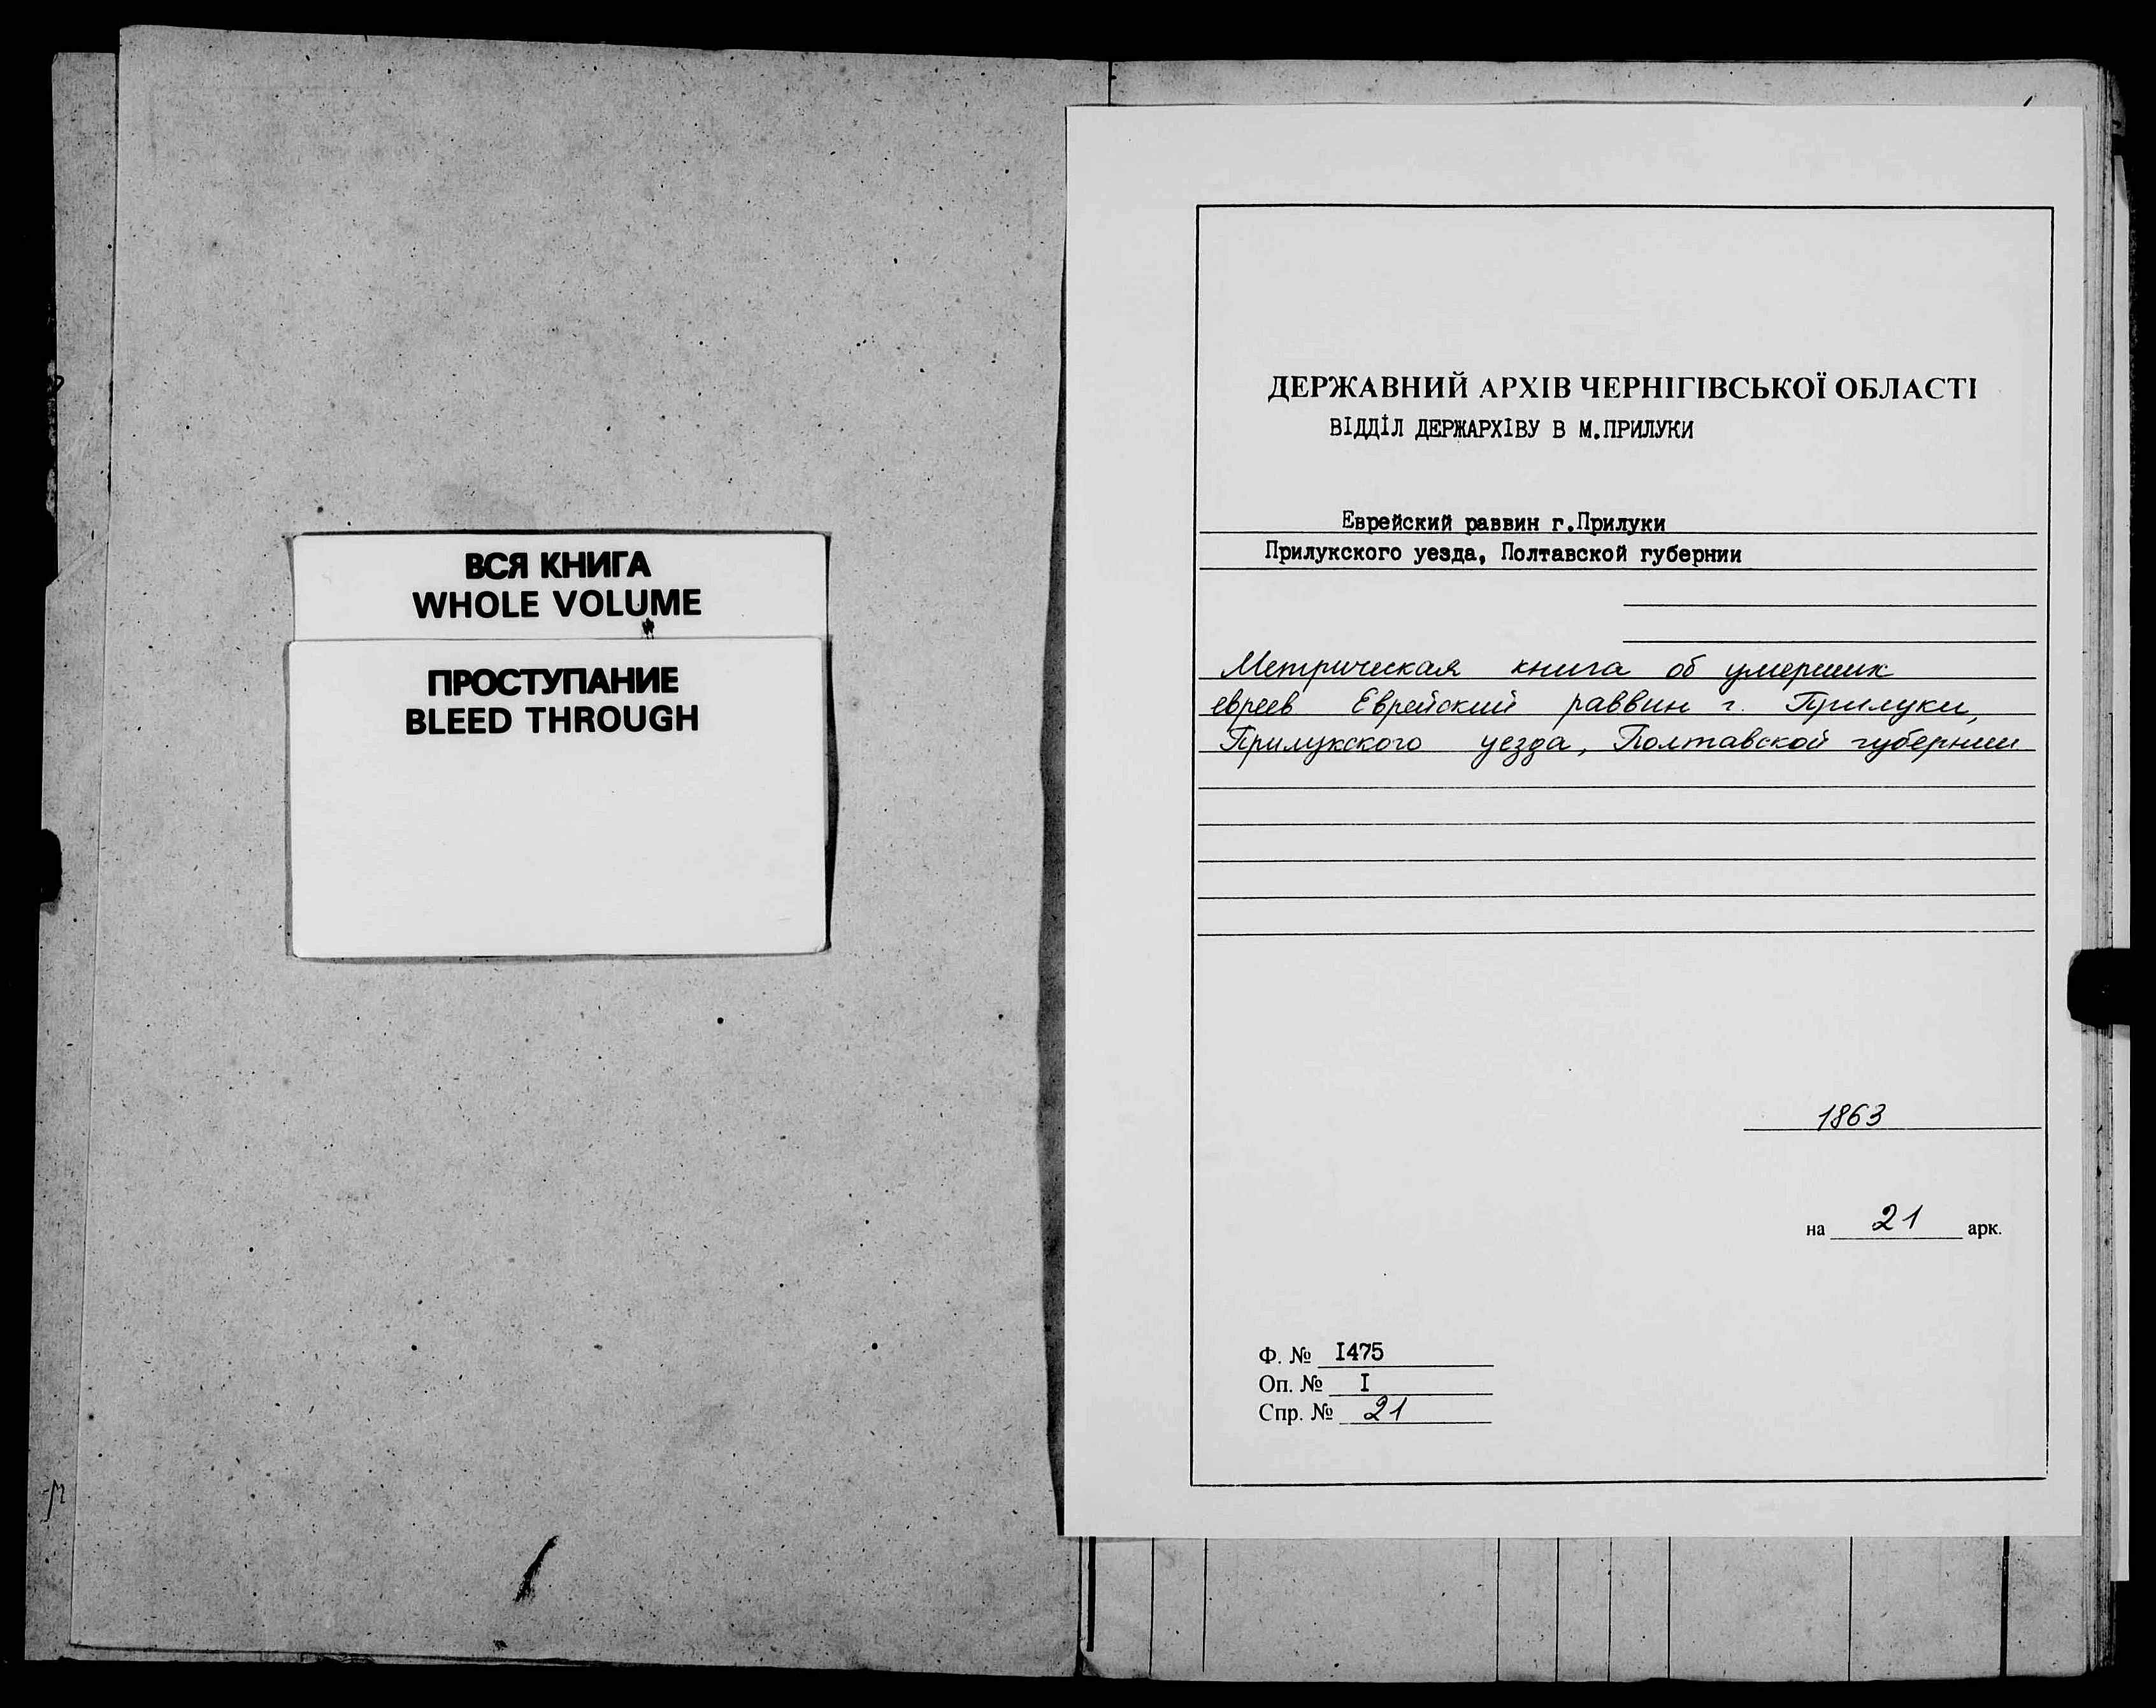 ВСЯ КНИГА
WHOLE VOLUME
ПРОСТУПАНИЕ
BLEED THROUGH
ДЕРЖАВНИЙ АРХІВ ЧЕРНІГІВСЬКОЇ ОБЛАСТІ
ВІДДІЛ ДЕРЖАРХІВУ В М.ПРИЛУКИ
Еврейский раввин г.Прилуки
Прилукского уезда, Полтавской губернии
Метрическая книга об умерших
евреев Еврейский раввин г. Прилуки,
Прилукского уезда, Полтавской губернии
1863
на 21 арк.
Ф. № I475
Оп. № I
Спр. № 21